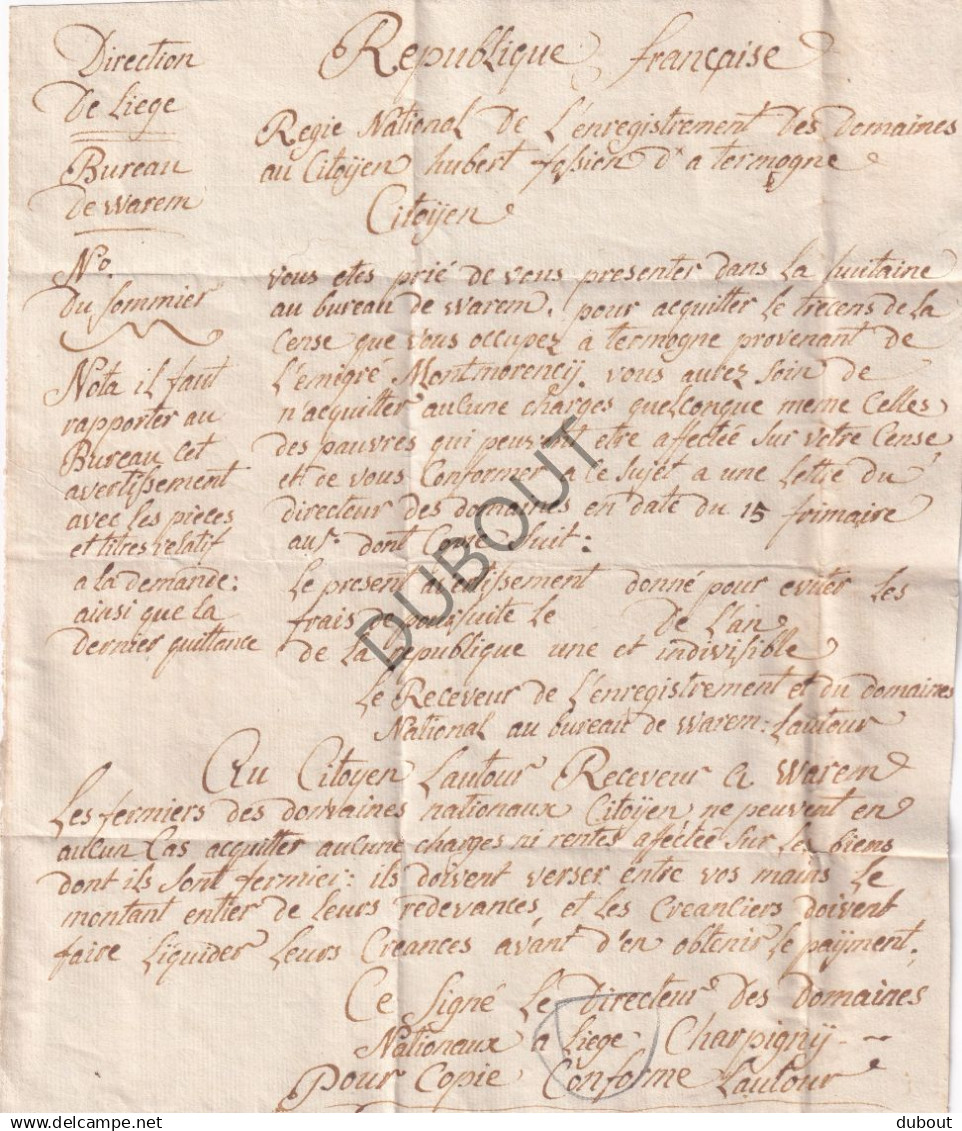 Direction
De Liege
Bureau
de warem
No.
du sommier
Nota il faut
rapporter au
Bureau cet
avertissement
avec les pièces
et titres relatif
a la demande:
ainsi que la
dernier quittance
Republique française
Regie National De L'enregistrement Des Domaines
au Citoÿen hubert fossien d* a termogne
Citoÿen
vous etes prié de vous presenter dans la huitaine
au bureau de warem. pour acquitter le trecens de la
Cense que vous occupez a termogne provenant de
L'emigré Montmorencij. vous aurez soin de
n'acquitter aucune charges quelconque meme Celles
des pauvres qui peuvent etre affectée sur votre Cense
et de vous Conformer a ce sujet a une lettre du
directeur des domaines en date du 15 frimaire
au 5e. dont Copie suit:
le present avertissement donné pour eviter les
frais de poursuite le de L'an
de la republique une et indivisible
le Receveur de L'enregistrement et du domaines
National au bureau de warem: Lautour
Au Citoyen Lautour Receveur a warem
Les fermiers des domaines nationaux Citoÿen, ne peuvent en
aucun Cas acquitter aucune charges ni rentes affectée sur les biens
dont ils sont fermier: ils doivent verser entre vos mains le
montant entier de leurs redevances, et les Creanciers doivent
faire Liquider Leurs Creances avant d'en obtenir le paÿment,
Ce signé Le Directeur Des Domaines
Nationaux a Liege Charpignij
Pour Copie Conforme Lautour
DUBOUT
delcampe.net
dubout